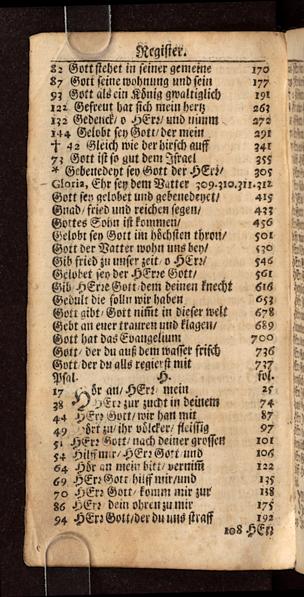 Register.
82 Gott stehet in seiner gemeine 170
87 Gott seine wohnung und sein 177
93 Gott als ein König gwaltiglich 191
122 Gefreut hat sich mein hertz 263
132 Gedenck/ o HErr/ und nimm 272
144 Gelobt sey Gott/ der mein 291
† 42 Gleich wie der hirsch auff 341
73 Gott ist so gut dem Israel 355
* Gebenedeyt sey Gott der HErr/ 305
Gloria, Ehr sey dem Vatter 309.310.311.312
Gott sey gelobet und gebenedeyet/ 415
Gnad/ fried und reichen segen/ 433
Gottes Sohn ist kommen/ 456
Gelobt sey Gott im höchsten thron/ 501
Gott der Vatter wohn uns bey/ 530
Gib fried zu unser zeit/ o HErr/ 546
Gelobet sey der HErre Gott/ 561
Gib HErre Gott dem deinen knecht 616
Gedult die solln wir haben 653
Gott gibt/ Gott nim̃t in dieser welt 678
Gebt an euer trauren und klagen/ 689
Gott hat das Evangelium 700
Gott/ der du auß dem wasser frisch 736
Gott der du alls regierst mit 737
Psal. H. fol.
17 Hör an/ HErr/ mein 25
38 HErr zur zucht in deinem 74
44 HErr Gott/ wir han mit 87
49 Hört zu/ ihr völcker/ fleissig 97
51 HErr Gott/ nach deiner grossen 101
54 Hilff mir/ HErr Gott/ und 106
64 Hör an mein bitt/ vernim̃ 122
69 HErr Gott hilff mir/ und 135
70 HErr Gott/ komm mir zur 138
86 HErr dein ohren zu mir 175
94 HErr Gott/ der du uns straff 192
108 HErr